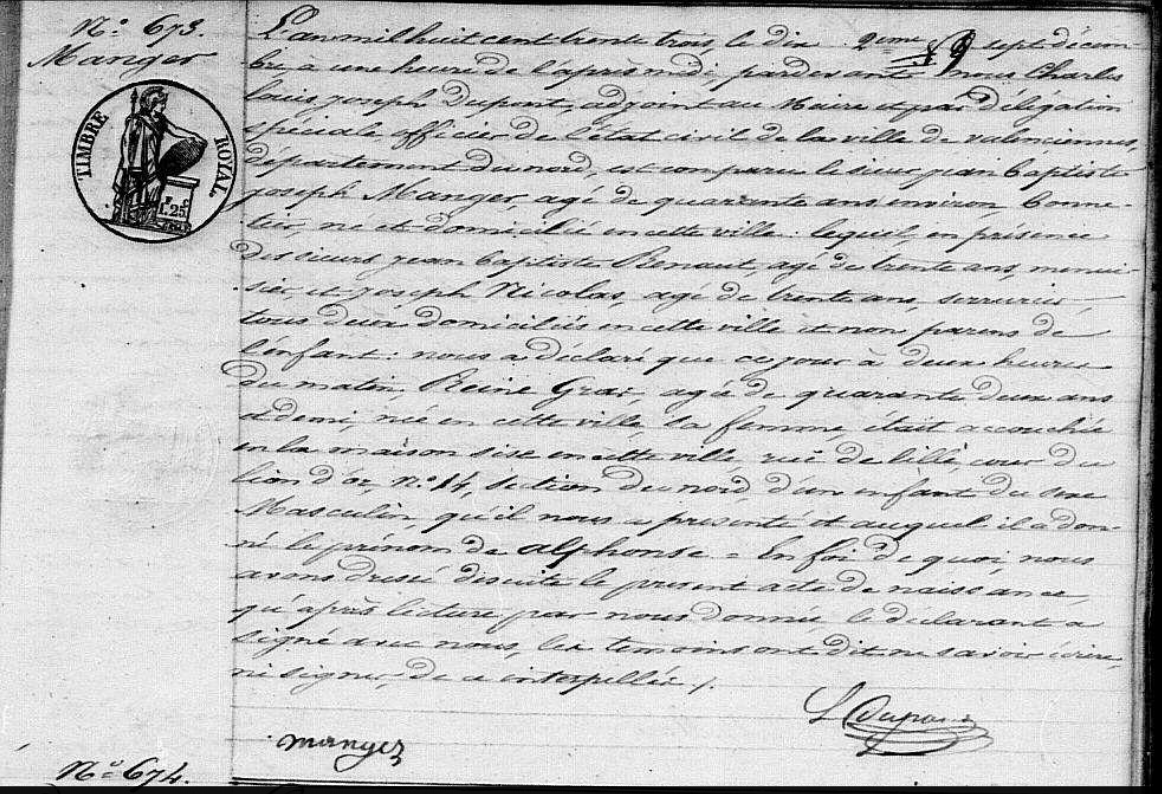 N.º 673.
Manger
TIMBRE ROYAL.
F. C.
1.25
L'an mil huit cent trente trois, le dix 2eme sept décem-
bre à une heure de l'après midi, pardevant nous Charles
Louis Joseph Dupont, adjoint au Maire et par délégation
spéciale officier de l'état civil de la ville de valenciennes,
département du nord, est comparu le sieur jean baptiste
joseph Manger, agé de quarante ans environ, bonne-
tier, né et domicilié en cette ville : lequel, en présence
des sieurs jean baptiste Renaut, agé de trente ans, menui-
sier, et joseph Nicolas, agé de trente ans, serrurier
tous deux domiciliés en cette ville et non parens de
l'enfant : nous a déclaré que ce jour à deux heures
du matin, Reine Grar, agée de quarante deux ans
et demi, née en cette ville, sa femme, était accouchée
en la maison sise en cette ville, rue de lille, cour du
lion d'or, n.º 14, section du nord, d'un enfant du sexe
Masculin, qu'il nous a présenté et auquel il a don-
né le prénom de alphonse = En foi de quoi, nous
avons dressé de suite le present acte de naissance,
qu'après lecture par nous donnée, le déclarant a
signé avec nous, les temoins ont dit ne savoir écrire,
ni signer, de ce interpellés ./.
L Dupont
manger
N.º 674.